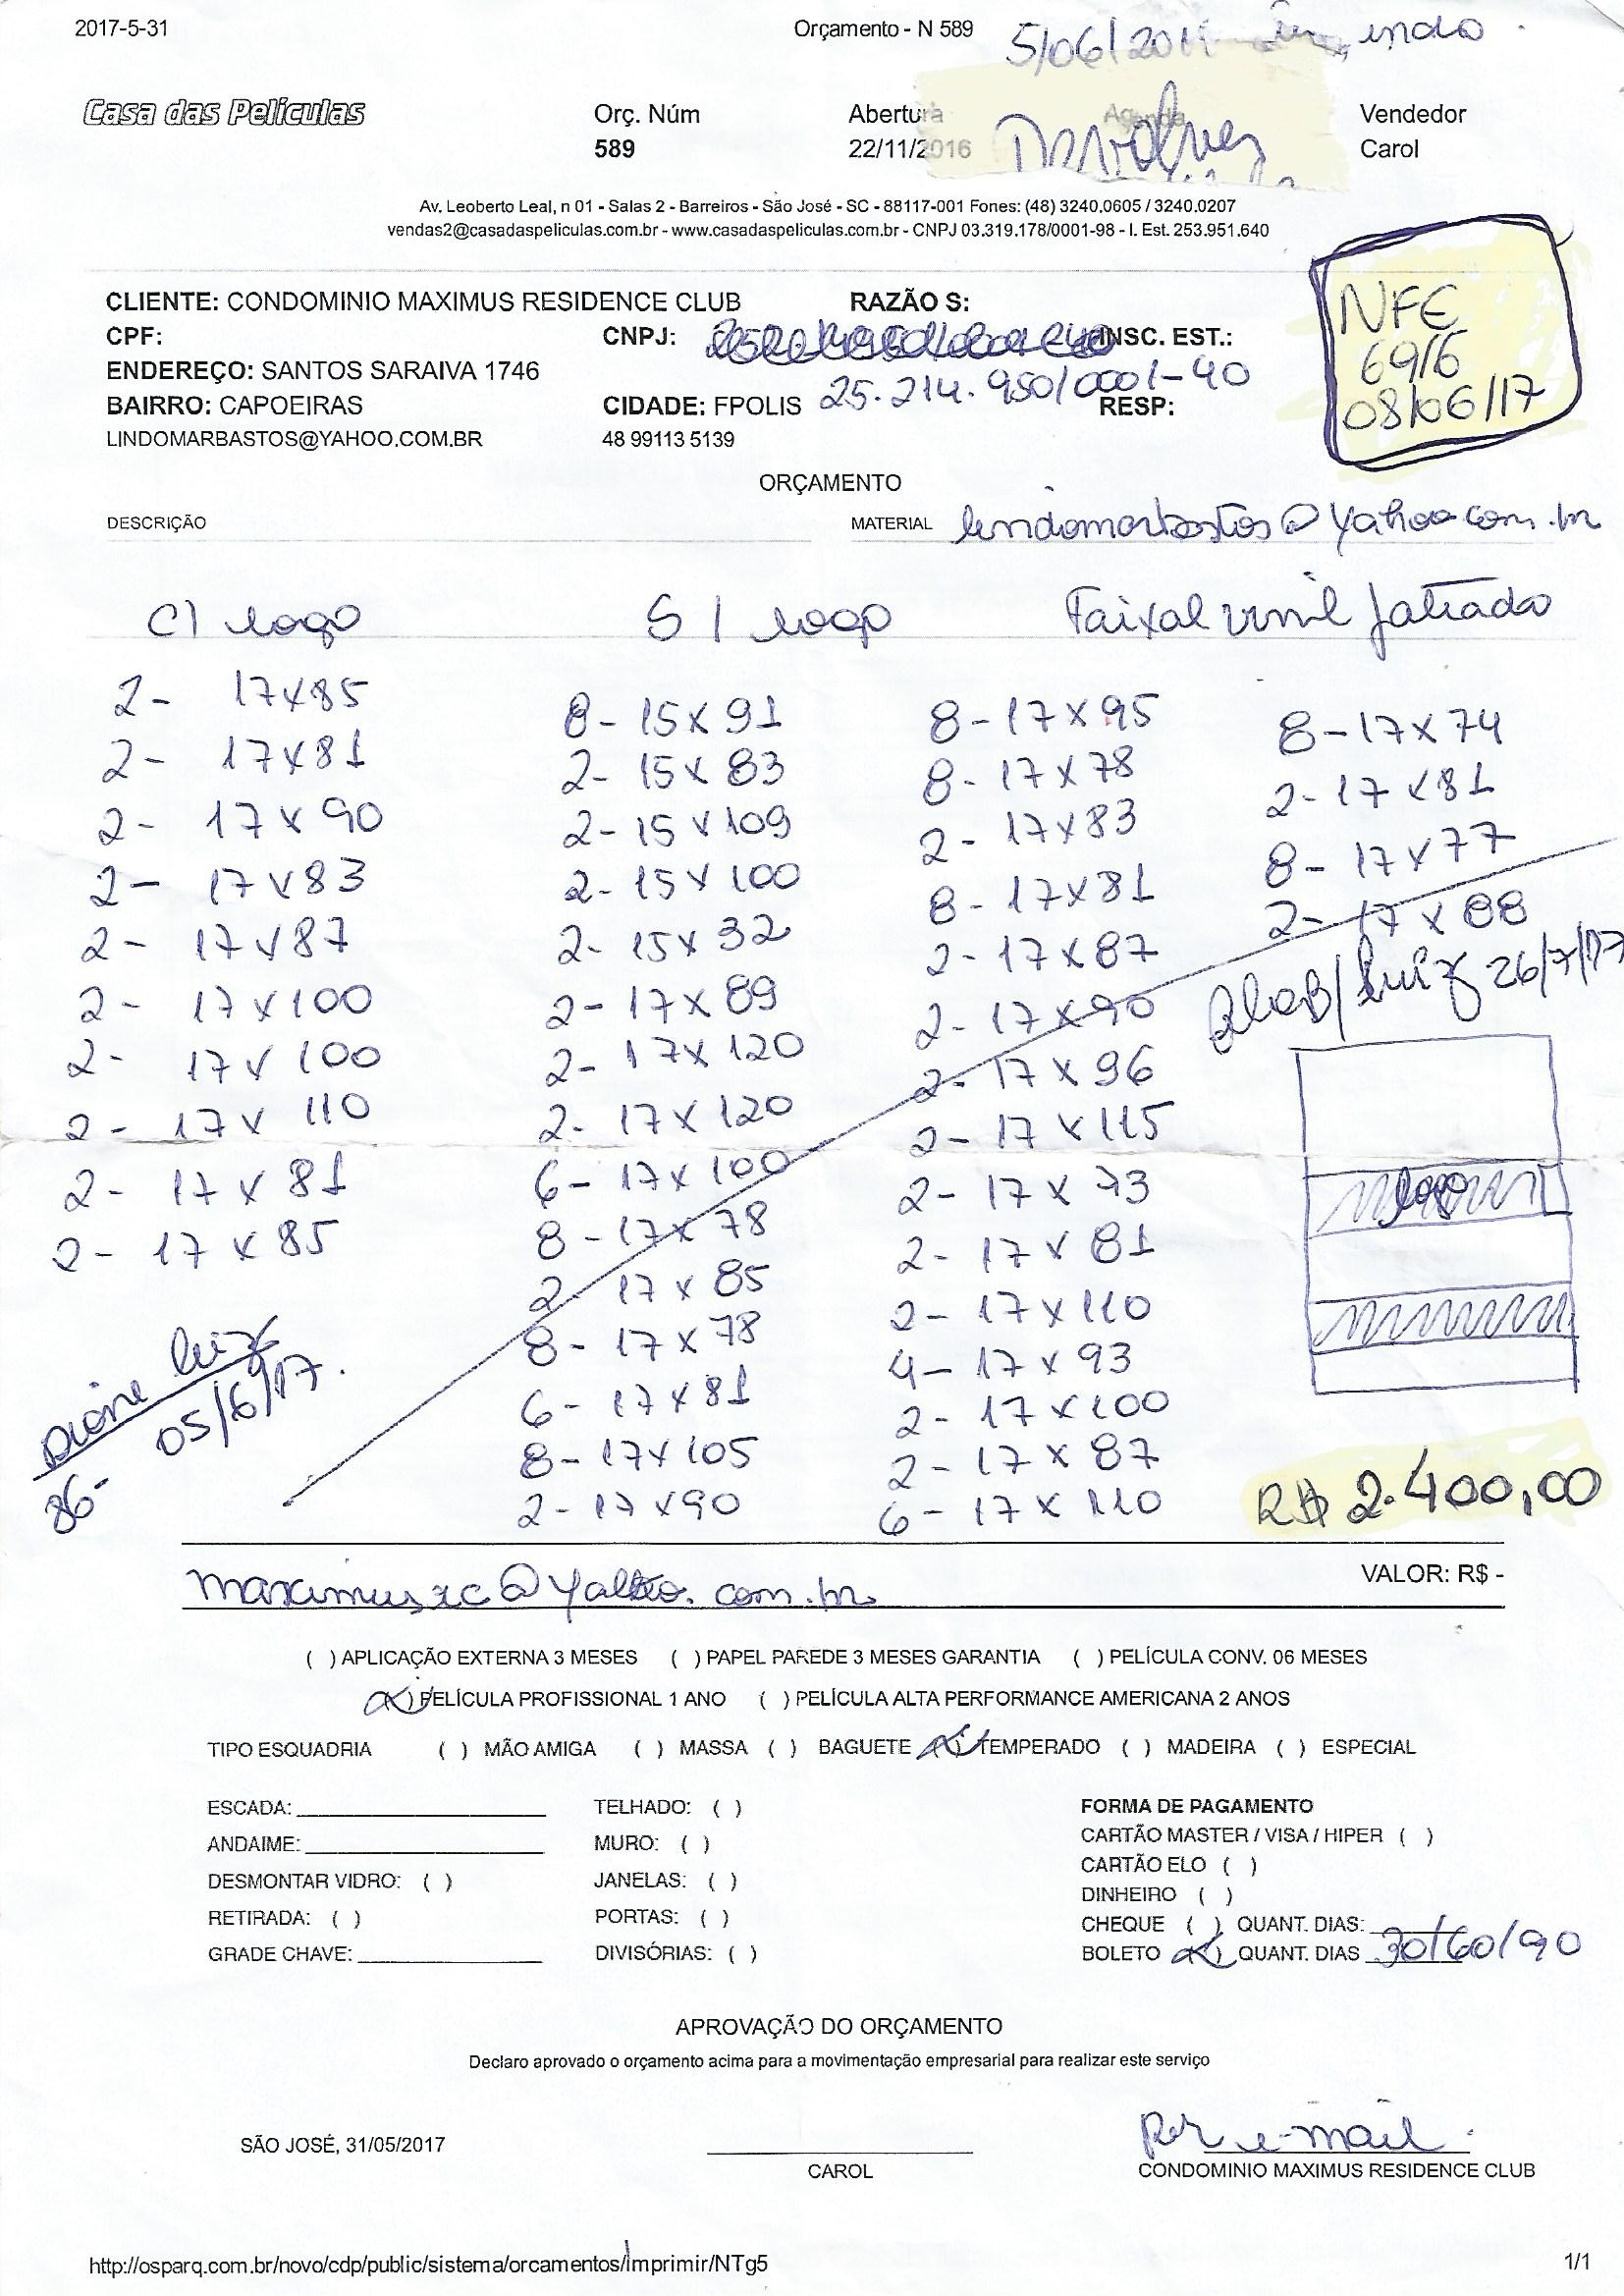 2017-5-31 Orçamento - N 589 5/06/201
Casa das Películas Orç. Núm Abertura Agenda Vendedor
589 22/11/2016 Carol
Av. Leoberto Leal, n 01 - Salas 2 - Barreiros - São José - SC - 88117-001 Fones: (48) 3240.0605 / 3240.0207
vendas2@casadaspeliculas.com.br - www.casadaspeliculas.com.br - CNPJ 03.319.178/0001-98 - I. Est. 253.951.640
CLIENTE: CONDOMINIO MAXIMUS RESIDENCE CLUB RAZÃO S:
CPF: CNPJ: INSC. EST.:
ENDEREÇO: SANTOS SARAIVA 1746
25.214.950/0001-40
BAIRRO: CAPOEIRAS CIDADE: FPOLIS RESP:
LINDOMARBASTOS@YAHOO.COM.BR 48 99113 5139
NFE
6916
08/06/17
ORÇAMENTO
DESCRIÇÃO MATERIAL lindomarbastos@yahoo.com.br
C/ logo S/ logo Faixa/vinil jateado
2- 17x85
2- 17x81
2- 17x90
2- 17x83
2- 17x87
2- 17x100
2- 17x100
2- 17x110
2- 17x81
2- 17x85
8- 15x91
2- 15x83
2- 15x109
2- 15x100
2- 15x32
2- 17x89
2- 17x120
2- 17x120
6- 17x100
8- 17x78
2- 17x85
8- 17x78
6- 17x81
8- 17x105
2- 17x90
8- 17x95
8- 17x78
2- 17x83
8- 17x81
2- 17x87
2- 17x90
2- 17x96
2- 17x115
2- 17x73
2- 17x81
2- 17x110
4- 17x93
2- 17x100
2- 17x87
6- 17x110
8- 17x74
2- 17x81
8- 17x77
2- 17x88
Luiz 26/7/17
logo
Luiz
05/6/17.
86-
R$ 2.400,00
VALOR: R$ -
maximusrc@yahoo.com.br
( ) APLICAÇÃO EXTERNA 3 MESES ( ) PAPEL PAREDE 3 MESES GARANTIA ( ) PELÍCULA CONV. 06 MESES
(x) PELÍCULA PROFISSIONAL 1 ANO ( ) PELÍCULA ALTA PERFORMANCE AMERICANA 2 ANOS
TIPO ESQUADRIA ( ) MÃO AMIGA ( ) MASSA ( ) BAGUETE (x) TEMPERADO ( ) MADEIRA ( ) ESPECIAL
ESCADA: TELHADO: ( ) FORMA DE PAGAMENTO
ANDAIME: MURO: ( ) CARTÃO MASTER / VISA / HIPER ( )
DESMONTAR VIDRO: ( ) JANELAS: ( ) CARTÃO ELO ( )
DINHEIRO ( )
RETIRADA: ( ) PORTAS: ( ) CHEQUE ( ) QUANT. DIAS:
GRADE CHAVE: DIVISÓRIAS: ( ) BOLETO (x) QUANT. DIAS 30/60/90
APROVAÇÃO DO ORÇAMENTO
Declaro aprovado o orçamento acima para a movimentação empresarial para realizar este serviço
Por e-mail
SÃO JOSÉ, 31/05/2017
CAROL CONDOMINIO MAXIMUS RESIDENCE CLUB
http://osparq.com.br/novo/cdp/public/sistema/orcamentos/imprimir/NTg5 1/1